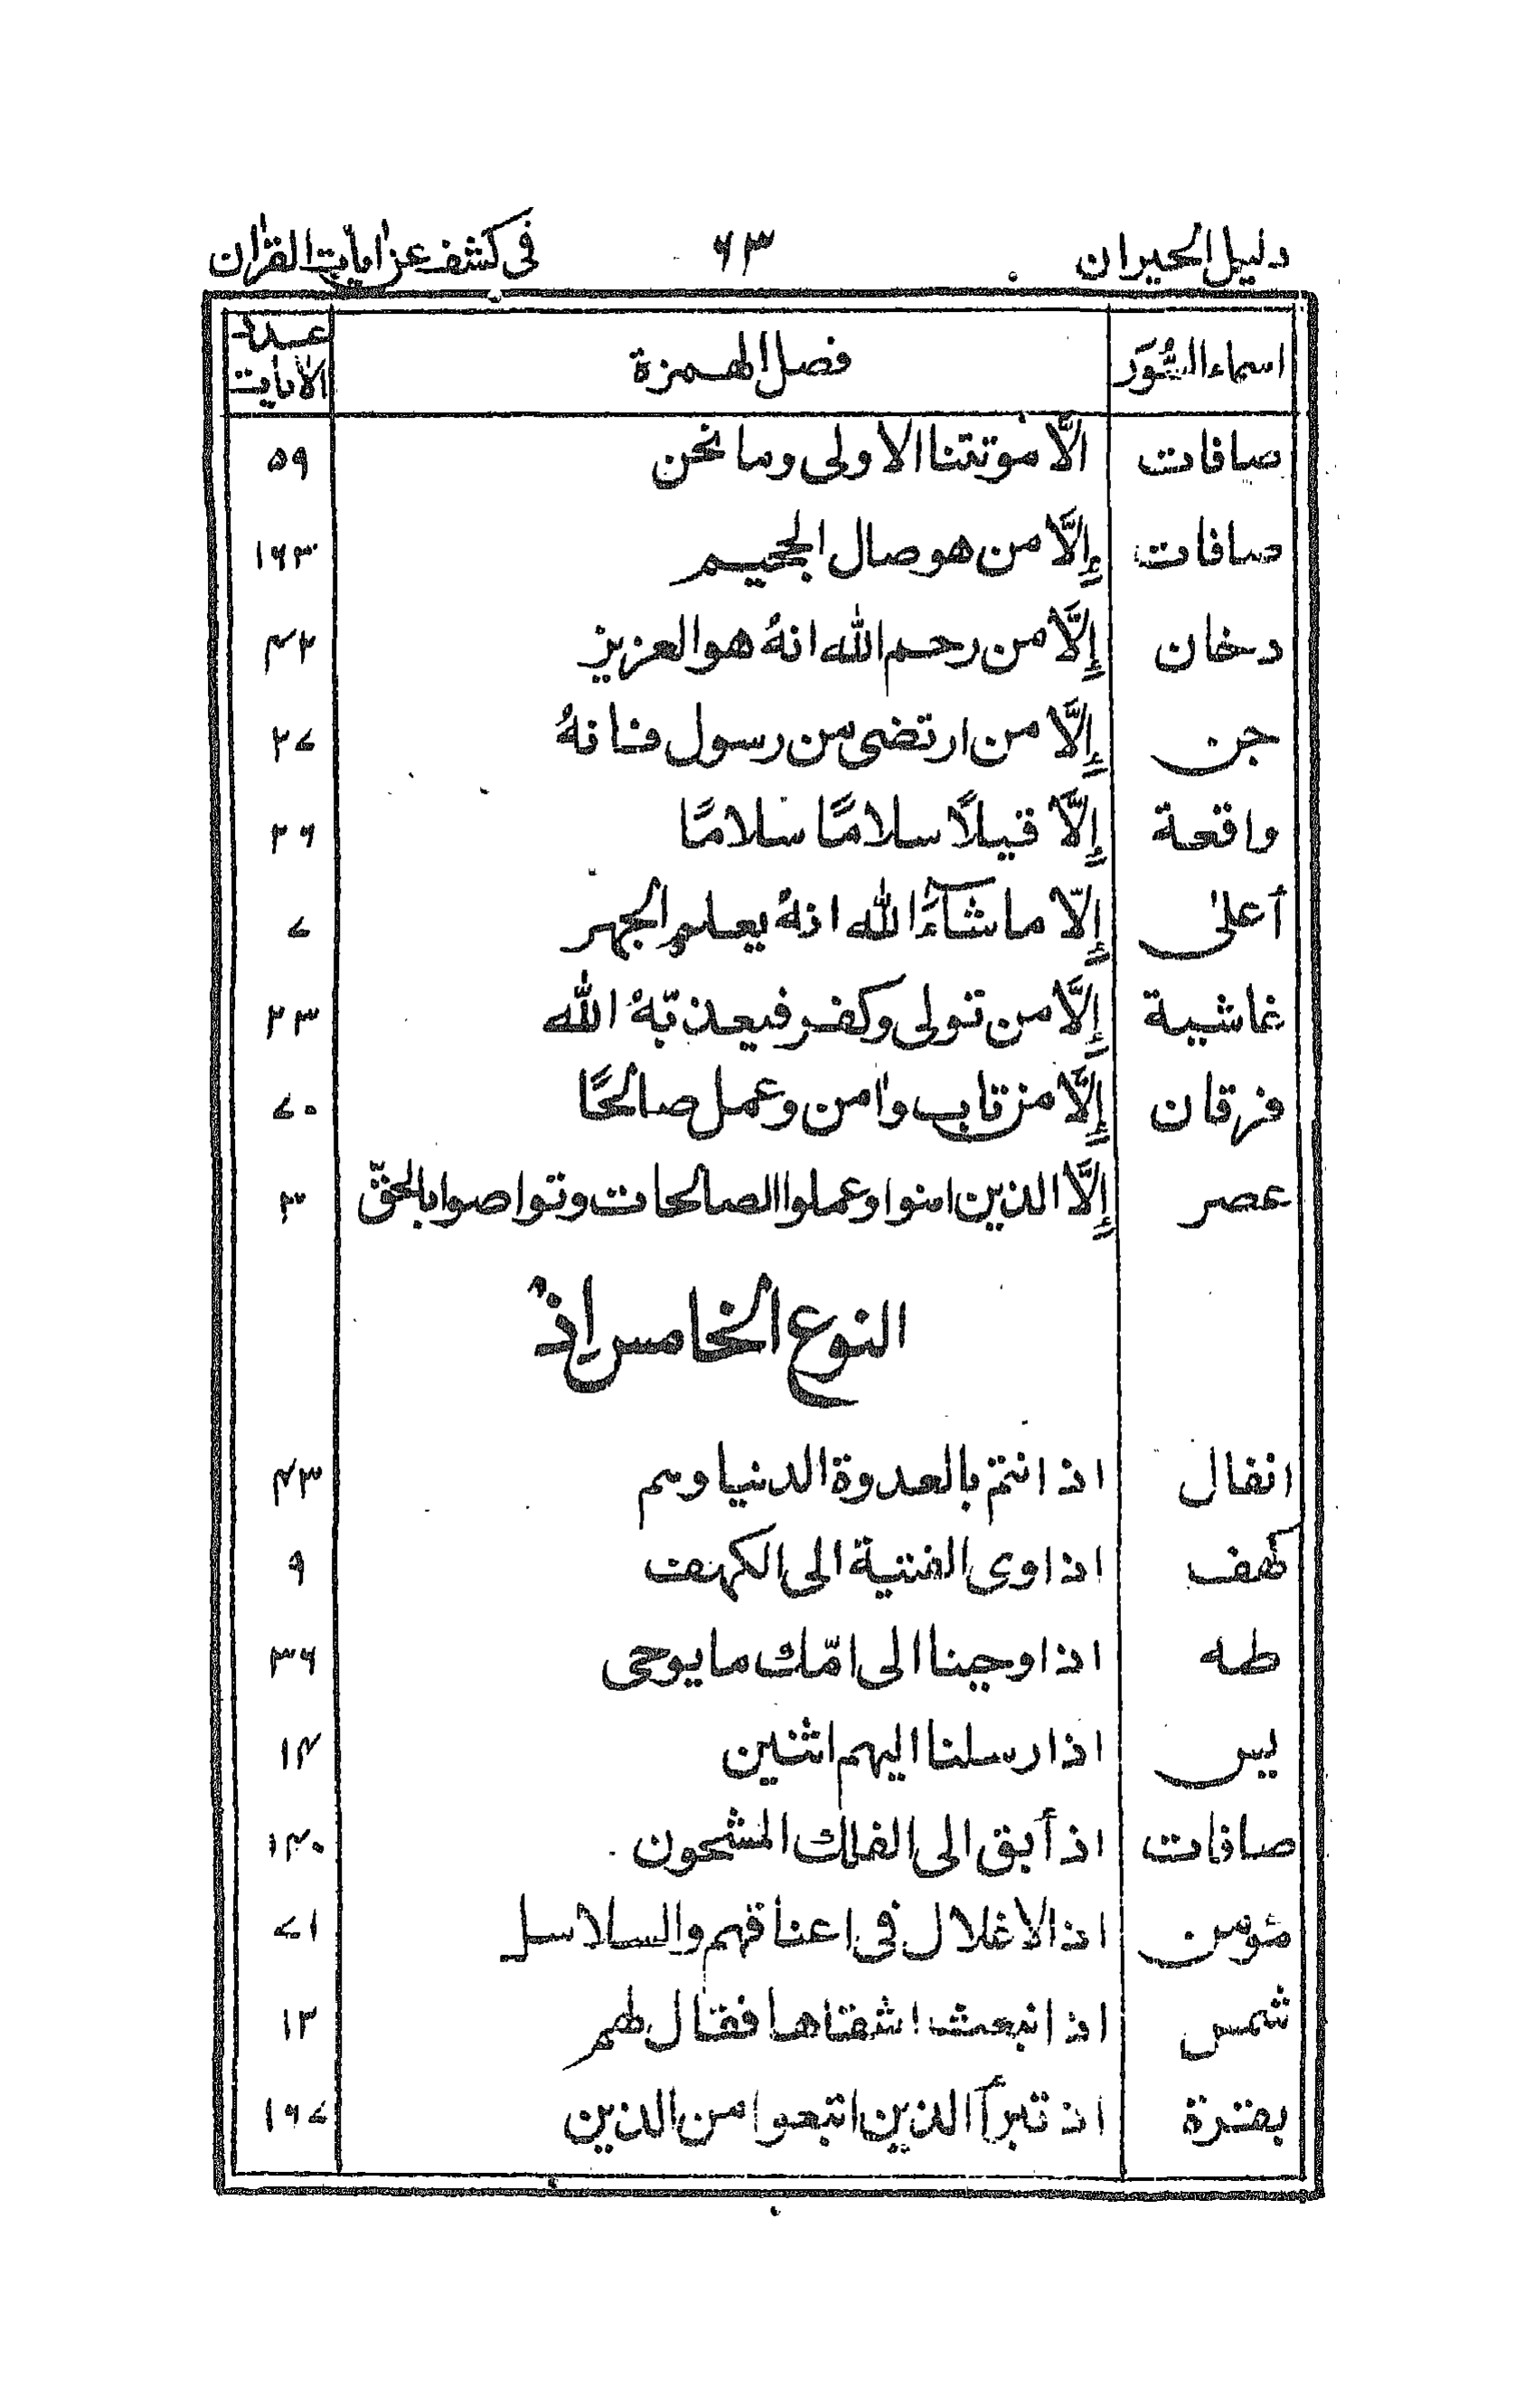 دليل الحيران ٦٣ فى كشف عن اٰيات القراٰن
اسماء السُّوَر فصل الهمزة عدد الاٰيات
صافات الَّا موتتنا الاولى وما نحن ۵۹
صافات إِلَّا من هو صال الجحيم ١٦٣
دخان إِلَّا من رحم الله انهُ هو العزيز ۴۲
جن إِلَّا من ارتضى من رسول فانهُ ۲۷
واقعة إِلَّا قيلاً سلامًا سلامًا ٢٦
أعلىٰ إِلّا ما شآءَ الله انهُ يعلم الجهر ۷
غاشية إِلَّا من تولى وكفر فيعذبّهُ الله ۲۳
فرقان إِلَّا من تاب واٰمن وعمل صالحًا ۷۰
عصر إِلَّا الذين امنوا وعملوا الصالحات وتواصوا بالحقّ ۳
النوع الخامس إذْ
انفال اذ انتم بالعدوة الدنيا وهم ۴۳
كهف اذ اوى الفتية الى الكهف ۹
طه اذ اوحينا الى امّك ما يوحى ٣٦
يس اذ ارسلنا اليهم اثنين ۱۴
صافات اذ أبق الى الفلك المشحون ۱۴۰
مؤمن اذ الاغلال فى اعناقهم والسلاسل ۷۱
شمس اذ انبعث اشقاها فقال لهم ۱۲
بقرة اذ تبرأ الذين اتبعوا من الذين ١٦۷